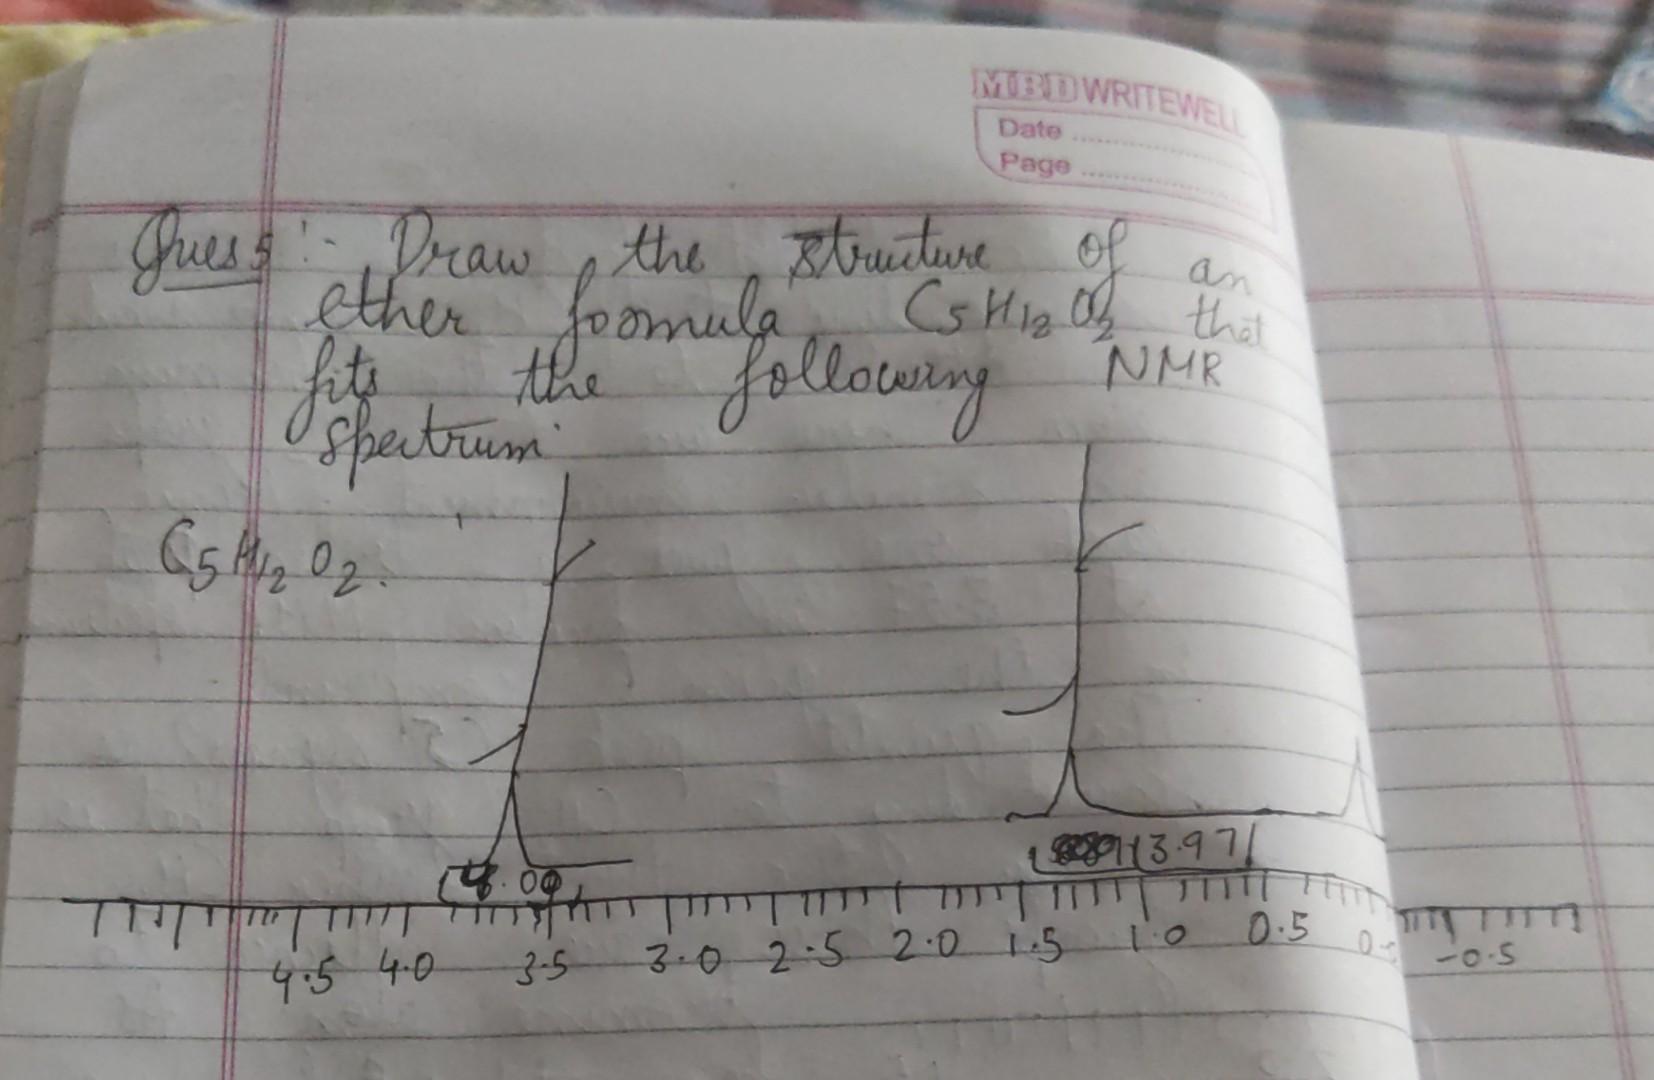 MBD WRITEWELL
Date
Page
Ques 5:- Draw the structure of an
ether foomula C5H12O2 that
fits the following NMR
spectrum.
C5H12O2.
4.00
3.97
4.5 4.0 3.5 3.0 2.5 2.0 1.5 1.0 0.5 -0.5